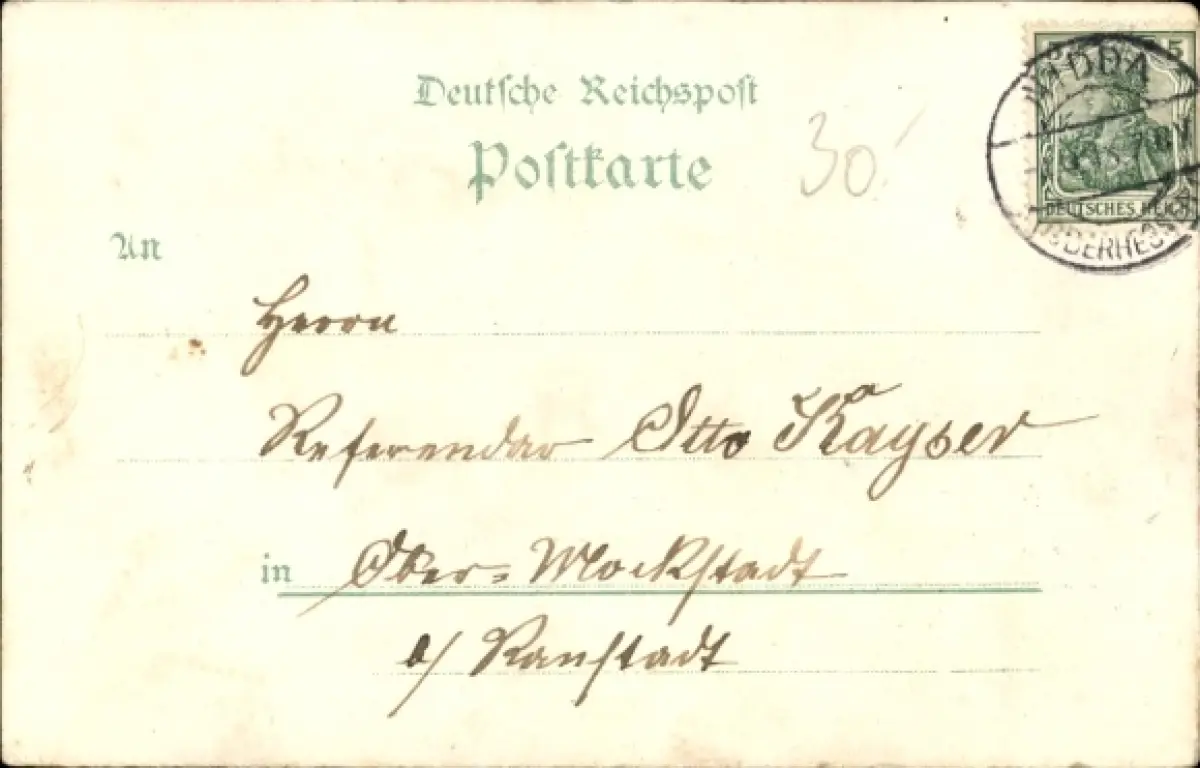 5 5
NIDDA
DEUTSCHES REICH
Deutsche Reichspost
Postkarte
30
An
Herrn
Referendar Otto Kayser
in Ober-Mockstadt
b/ Ranstadt